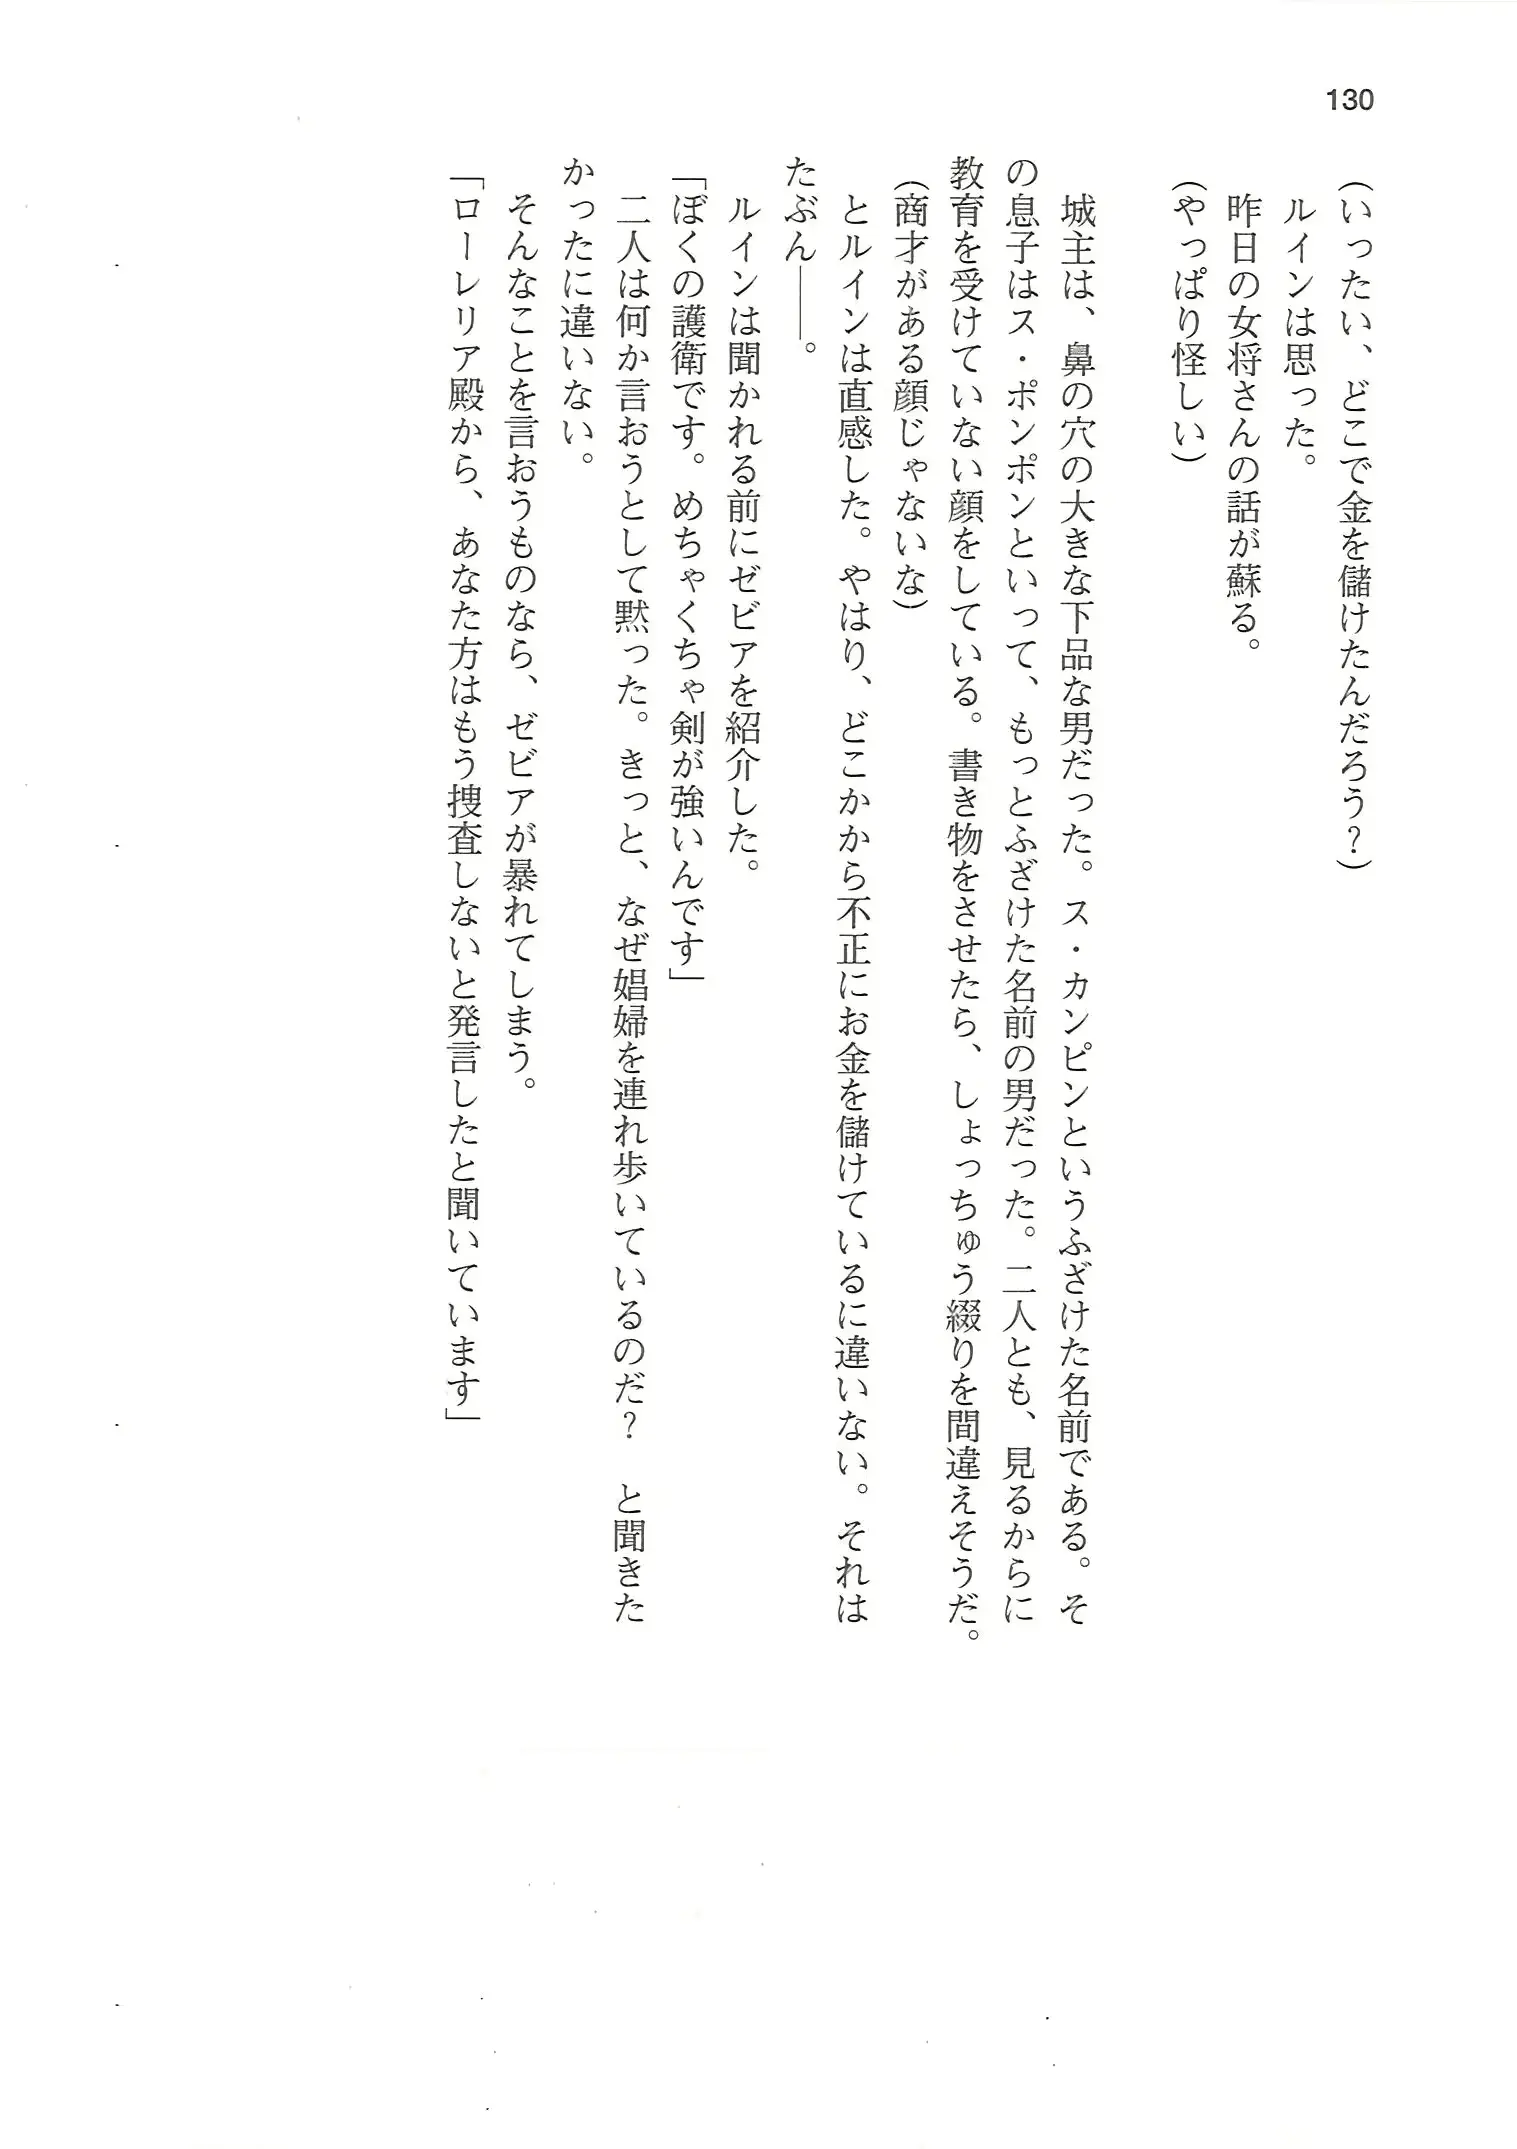 130
(いったい、どこで金を儲けたんだろう?)
　ルインは思った。
　昨日の女将さんの話が蘇る。
(やっぱり怪しい)
　城主は、鼻の穴の大きな下品な男だった。ス・カンピンというふざけた名前である。そ
の息子はス・ポンポンといって、もっとふざけた名前の男だった。二人とも、見るからに
教育を受けていない顔をしている。書き物をさせたら、しょっちゅう綴りを間違えそうだ。
(商才がある顔じゃないな)
　とルインは直感した。やはり、どこかから不正にお金を儲けているに違いない。それは
たぶん――。
　ルインは聞かれる前にゼビアを紹介した。
「ぼくの護衛です。めちゃくちゃ剣が強いんです」
　二人は何か言おうとして黙った。きっと、なぜ娼婦を連れ歩いているのだ?　と聞きた
かったに違いない。
　そんなことを言おうものなら、ゼビアが暴れてしまう。
「ローレリア殿から、あなた方はもう捜査しないと発言したと聞いています」